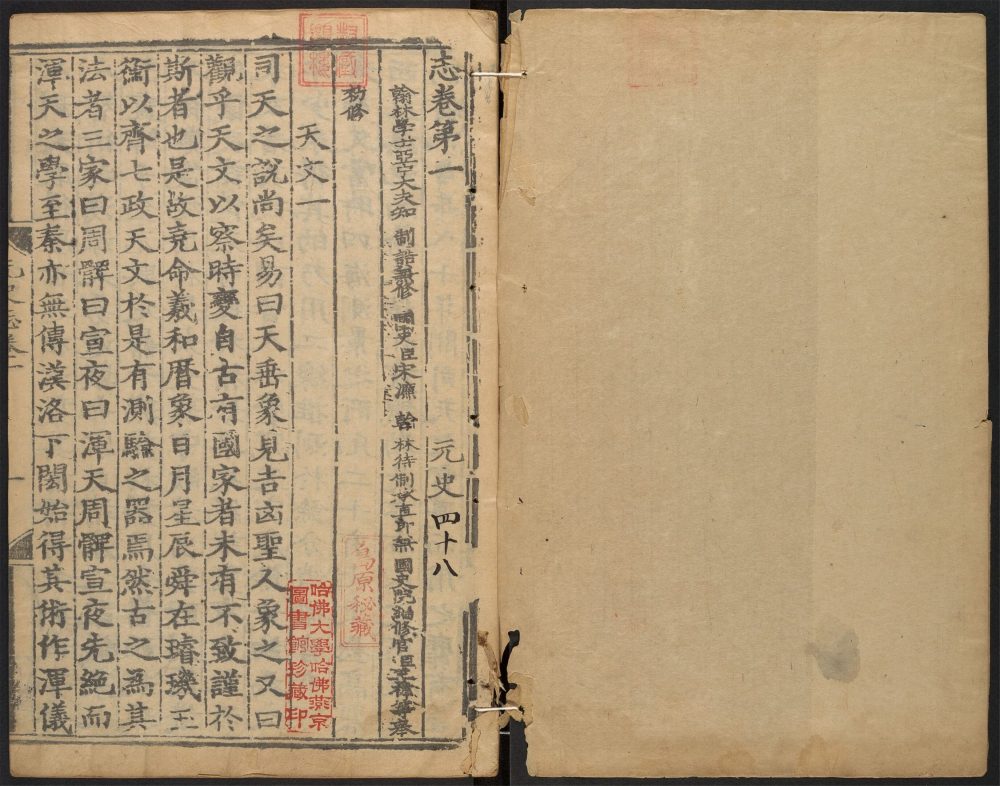 志卷第一 元史四十八
翰林學士亞中大夫知 制誥兼修 國史臣宋濂 翰林待制承直郎兼 國史院編修官臣王禕等奉
勑修
天文一
司天之說尚矣易曰天垂象見吉凶聖人象之又曰
觀乎天文以察時變自古有國家者未有不致謹於
斯者也是故堯命羲和曆象日月星辰舜在璿璣玉
衡以齊七政天文於是有測驗之器焉然古之為其
法者三家曰周髀曰宣夜曰渾天周髀宣夜先絶而
渾天之學至秦亦無傳漢洛下閎始得其術作渾儀
島原秘藏
哈佛大學哈佛燕京
圖書館珍藏印